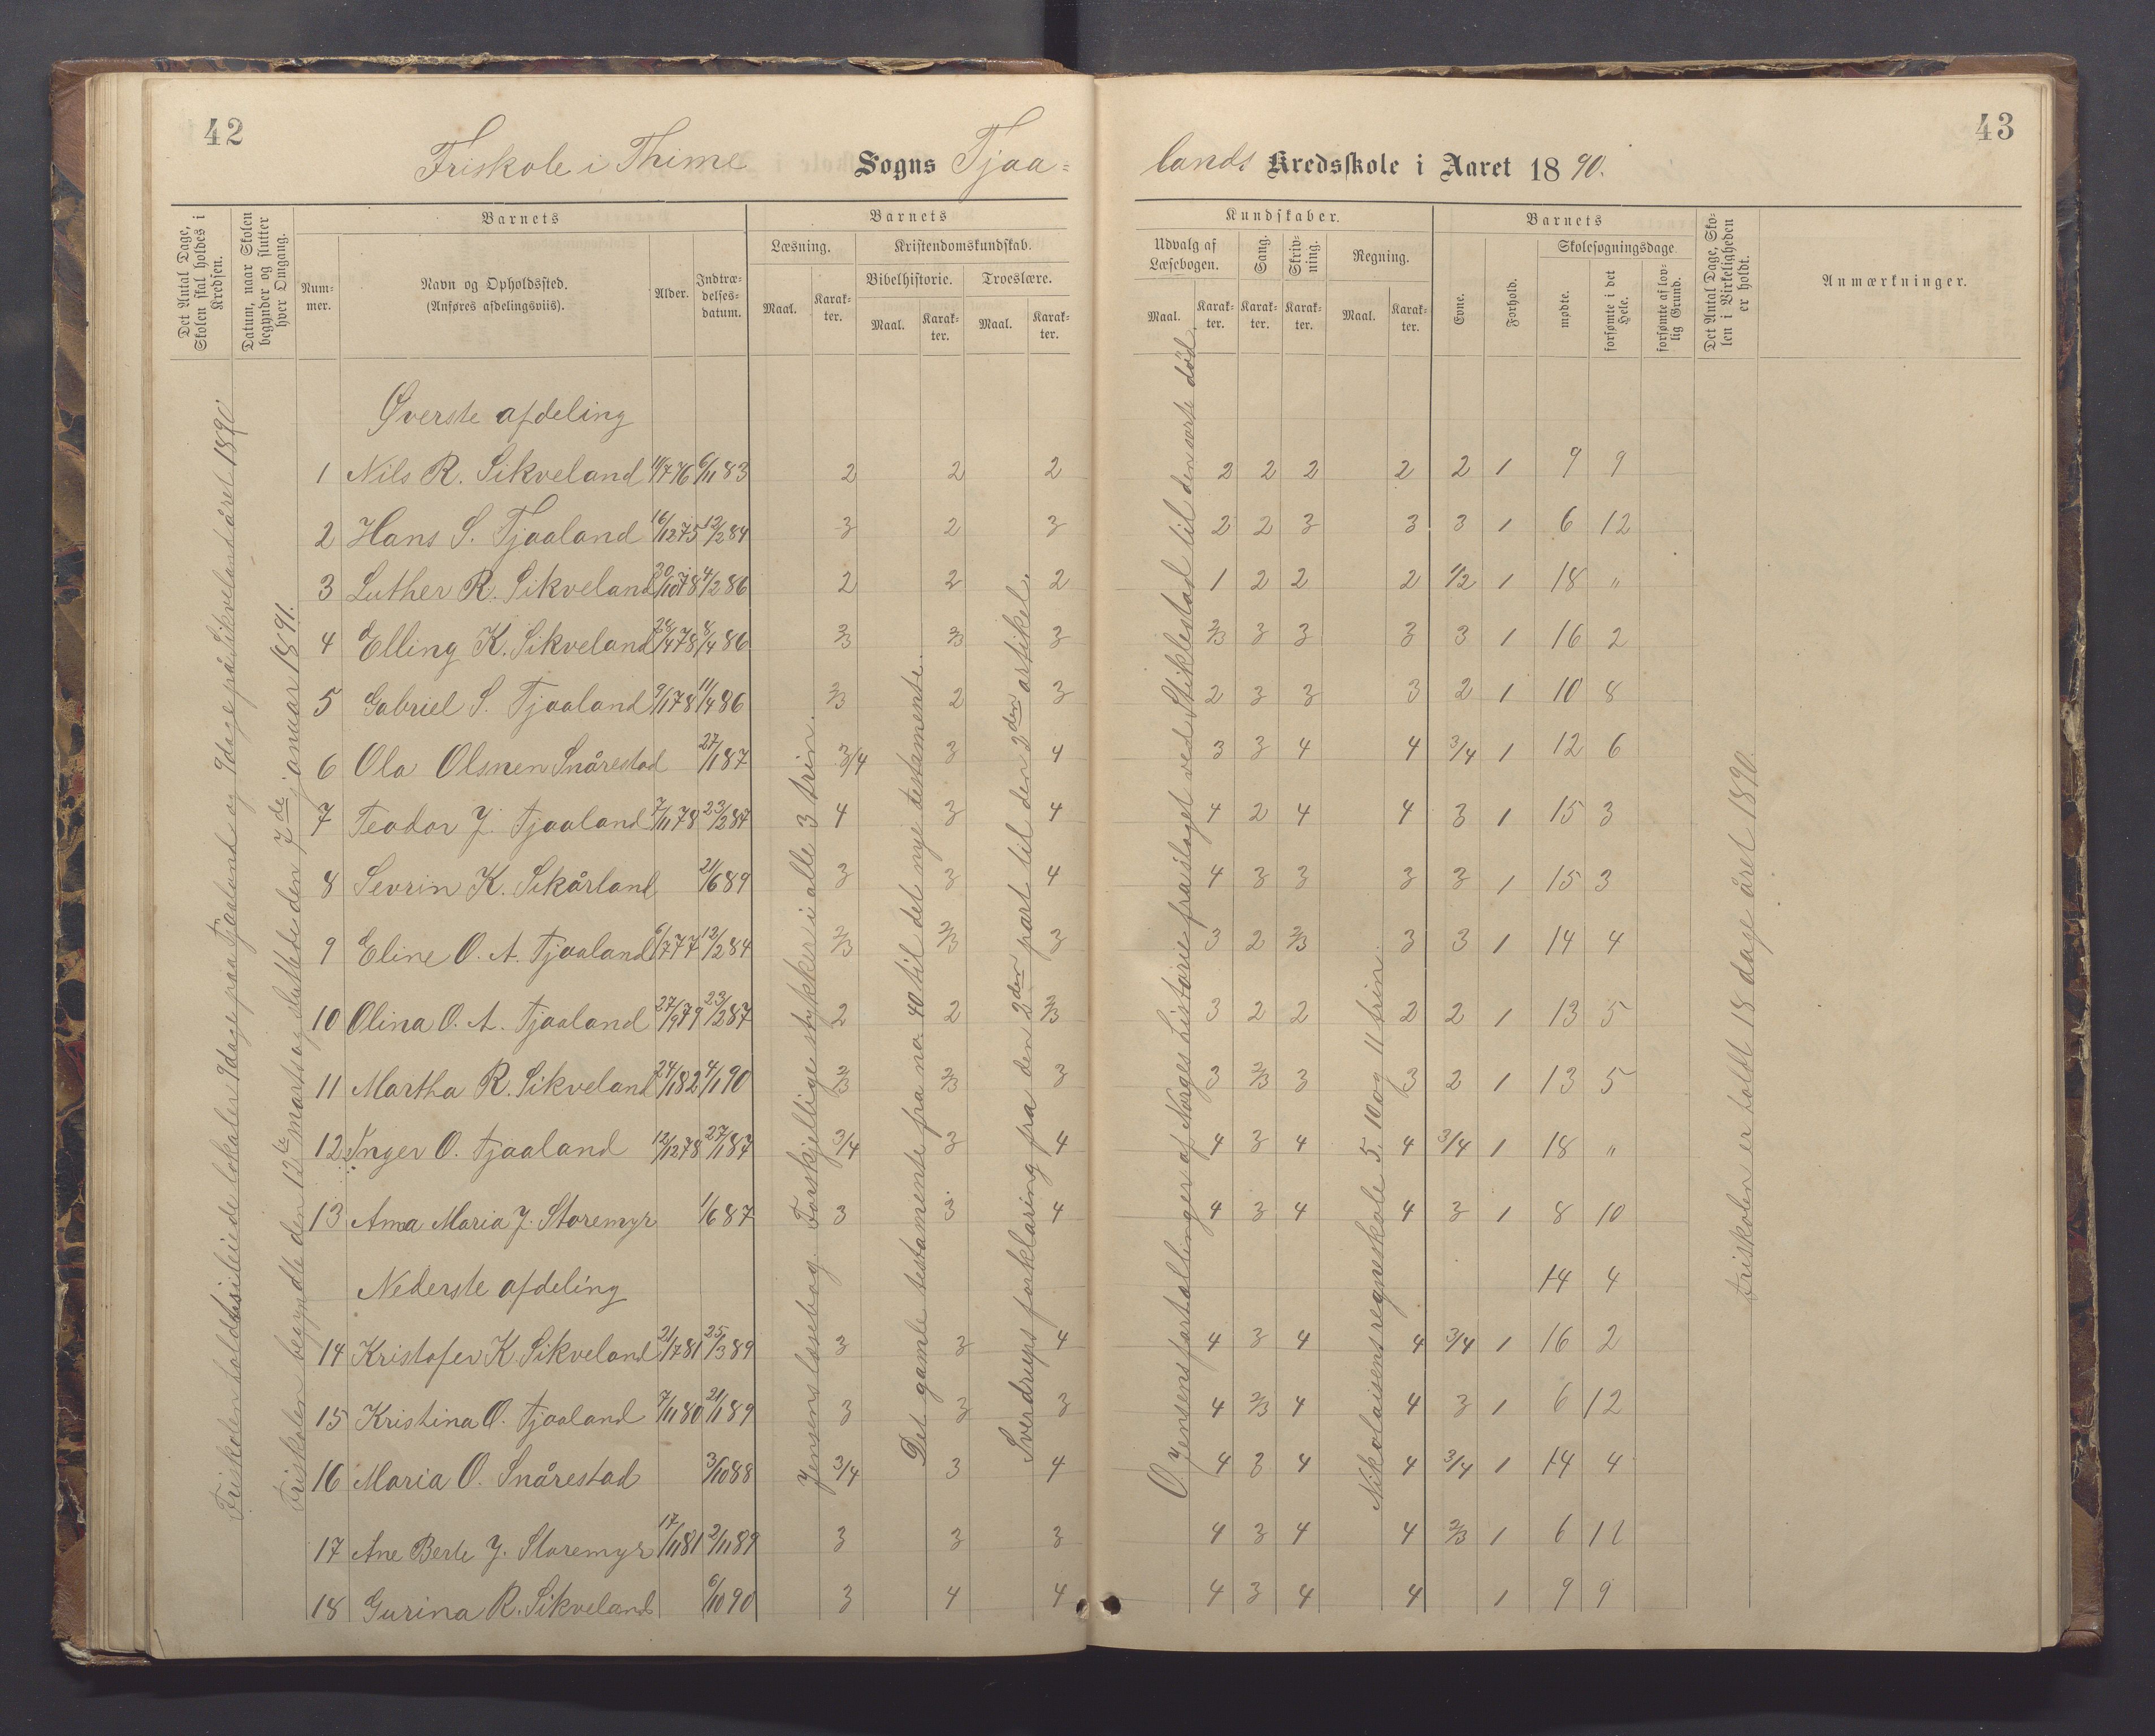 42
Friskole i Thime Sogns Tjaa-
Det Antal Dage, Skolen skal holdes i Kredsen.
Datum, naar Skolen begynder og slutter hver Omgang.
Barnets
Nummer.
Navn og Opholdssted.
(Anføres afdelingsviis).
Alder.
Indtrædelses-datum.
Barnets
Læsning.
Maal.
Karakter.
Kristendomskundskab.
Bibelhistorie.
Maal.
Karakter.
Troeslære.
Maal.
Karakter.
Friskolen holdtes i leiede lokaler 9 dage paa Tjaaland og 9 dage på Sikveland året 1890
Friskolen begyndte den 12te marts og sluttede den 7de januar 1891.
Øverste afdeling
1 Nils R. Sikveland 11/7 76 6/11 83 2 2 2
2 Hans S. Tjaaland 16/12 75 12/2 84 3 2 3
3 Luther R. Sikveland 30/10 78 4/2 86 2 2 2
4 Elling K. Sikveland 28/4 78 8/4 86 2/3 2/3 3
5 Gabriel S. Tjaaland 9/1 78 11/4 86 2/3 2 3
6 Ola Olsnen Snårestad 27/1 87 3/4 3 4
7 Teodor J. Tjaaland 7/11 78 23/2 87 4 3 4
8 Sevrin K. Sikårland 21/6 89 3 3 4
9 Eline O. A. Tjaaland 6/7 77 12/2 84 2/3 2/3 3
10 Olina O. A. Tjaaland 27/9 79 23/2 87 2 2 2/3
11 Martha R. Sikveland 24/1 82 4/1 90 2/3 2/3 3
12 Inger O. Tjaaland 12/12 78 27/1 87 3/4 3 4
13 Ama Maria J. Storemyr 1/6 87 3 3 4
Nederste afdeling
14 Kristofer K. Sikveland 21/7 81 25/3 89 3 3 4
15 Kristina O. Tjaaland 7/11 80 21/1 89 3 3 3
16 Maria O. Snårestad 3/10 88 3/4 3 4
17 Ane Berte J. Storemyr 17/11 81 2/11 89 3 3 3
18 Gurina R. Sikveland 6/10 90 3 4 4
Jensens læsebog. Forskjellige stykker i alle 3 trin.
Det gamle testamente fra no. 40 til det nye testamente.
Sverdrups forklaring fra den 2den part til den 2den artikel.
43
lands Kredsskole i Aaret 1890.
Kundskaber.
Udvalg af Læsebogen.
Maal.
Karakter.
Sang.
Karakter.
Skrivning.
Karakter.
Regning.
Maal.
Karakter.
Barnets
Evne.
Forhold.
Skolesøgningsdage.
mødte.
forsømte i det Hele.
forsømte af lovlig Grund.
Det Antal Dage, Skolen i Virkeligheden er holdt.
Anmærkninger.
2 2 2 2 2 1 9 9
2 2 3 3 3 1 6 12
1 2 2 2 1/2 1 18 "
2/3 3 3 3 3 1 16 2
2 3 3 3 2 1 10 8
3 3 4 4 3/4 1 12 6
4 2 4 4 3 1 15 3
4 3 3 3 3 1 15 3
3 2 2/3 3 3 1 14 4
3 2 2 2 2 1 13 5
3 2/3 3 3 2 1 13 5
4 3 4 4 3/4 1 18 "
4 3 4 4 3 1 8 10
14 4
4 3 4 4 3/4 1 16 2
4 2/3 4 4 3 1 6 12
4 3 4 4 3/4 1 14 4
4 3 4 4 2/3 1 6 11
4 3 4 4 1 9 9
O. Jensens fortællinger af Norges historie fra slaget ved Stiklestad til den sorte død.
Nikolaisens regneskole 5. 10 og 11 trin
Friskolen er holdt 18 dage året 1890.